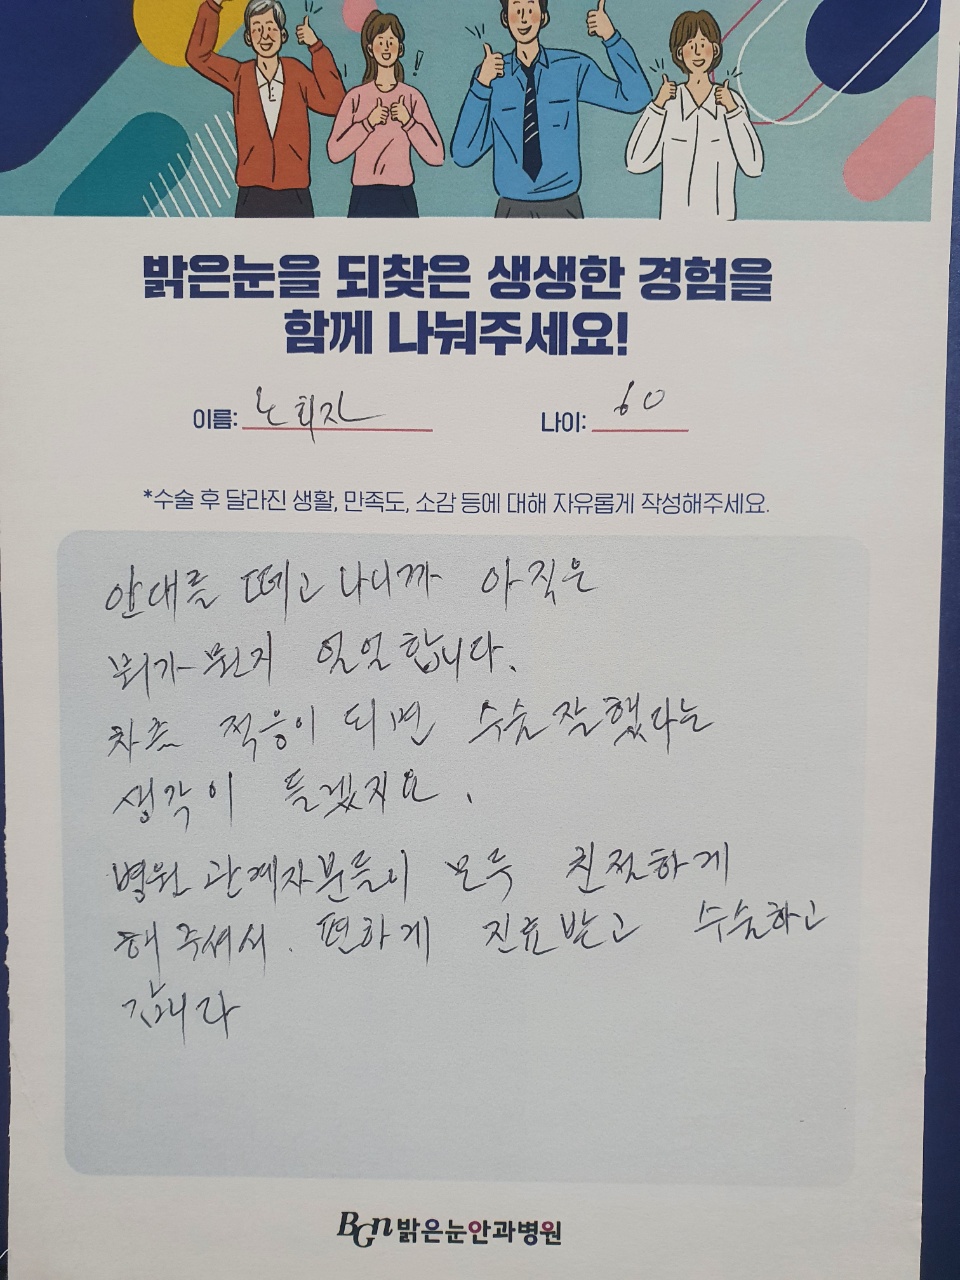 밝은눈을 되찾은 생생한 경험을
함께 나눠주세요!
이름: 노희자 나이: 60
*수술 후 달라진 생활, 만족도, 소감 등에 대해 자유롭게 작성해주세요.
안대를 떼고 나니까 아직은
뭐가 뭔지 얼얼합니다.
차츰 적응이 되면 수술 잘 했다는
생각이 들겠지요.
병원 관계자분들이 모두 친절하게
해 주셔서. 편하게 진료받고 수술하고
갑니다
BGN 밝은눈안과병원